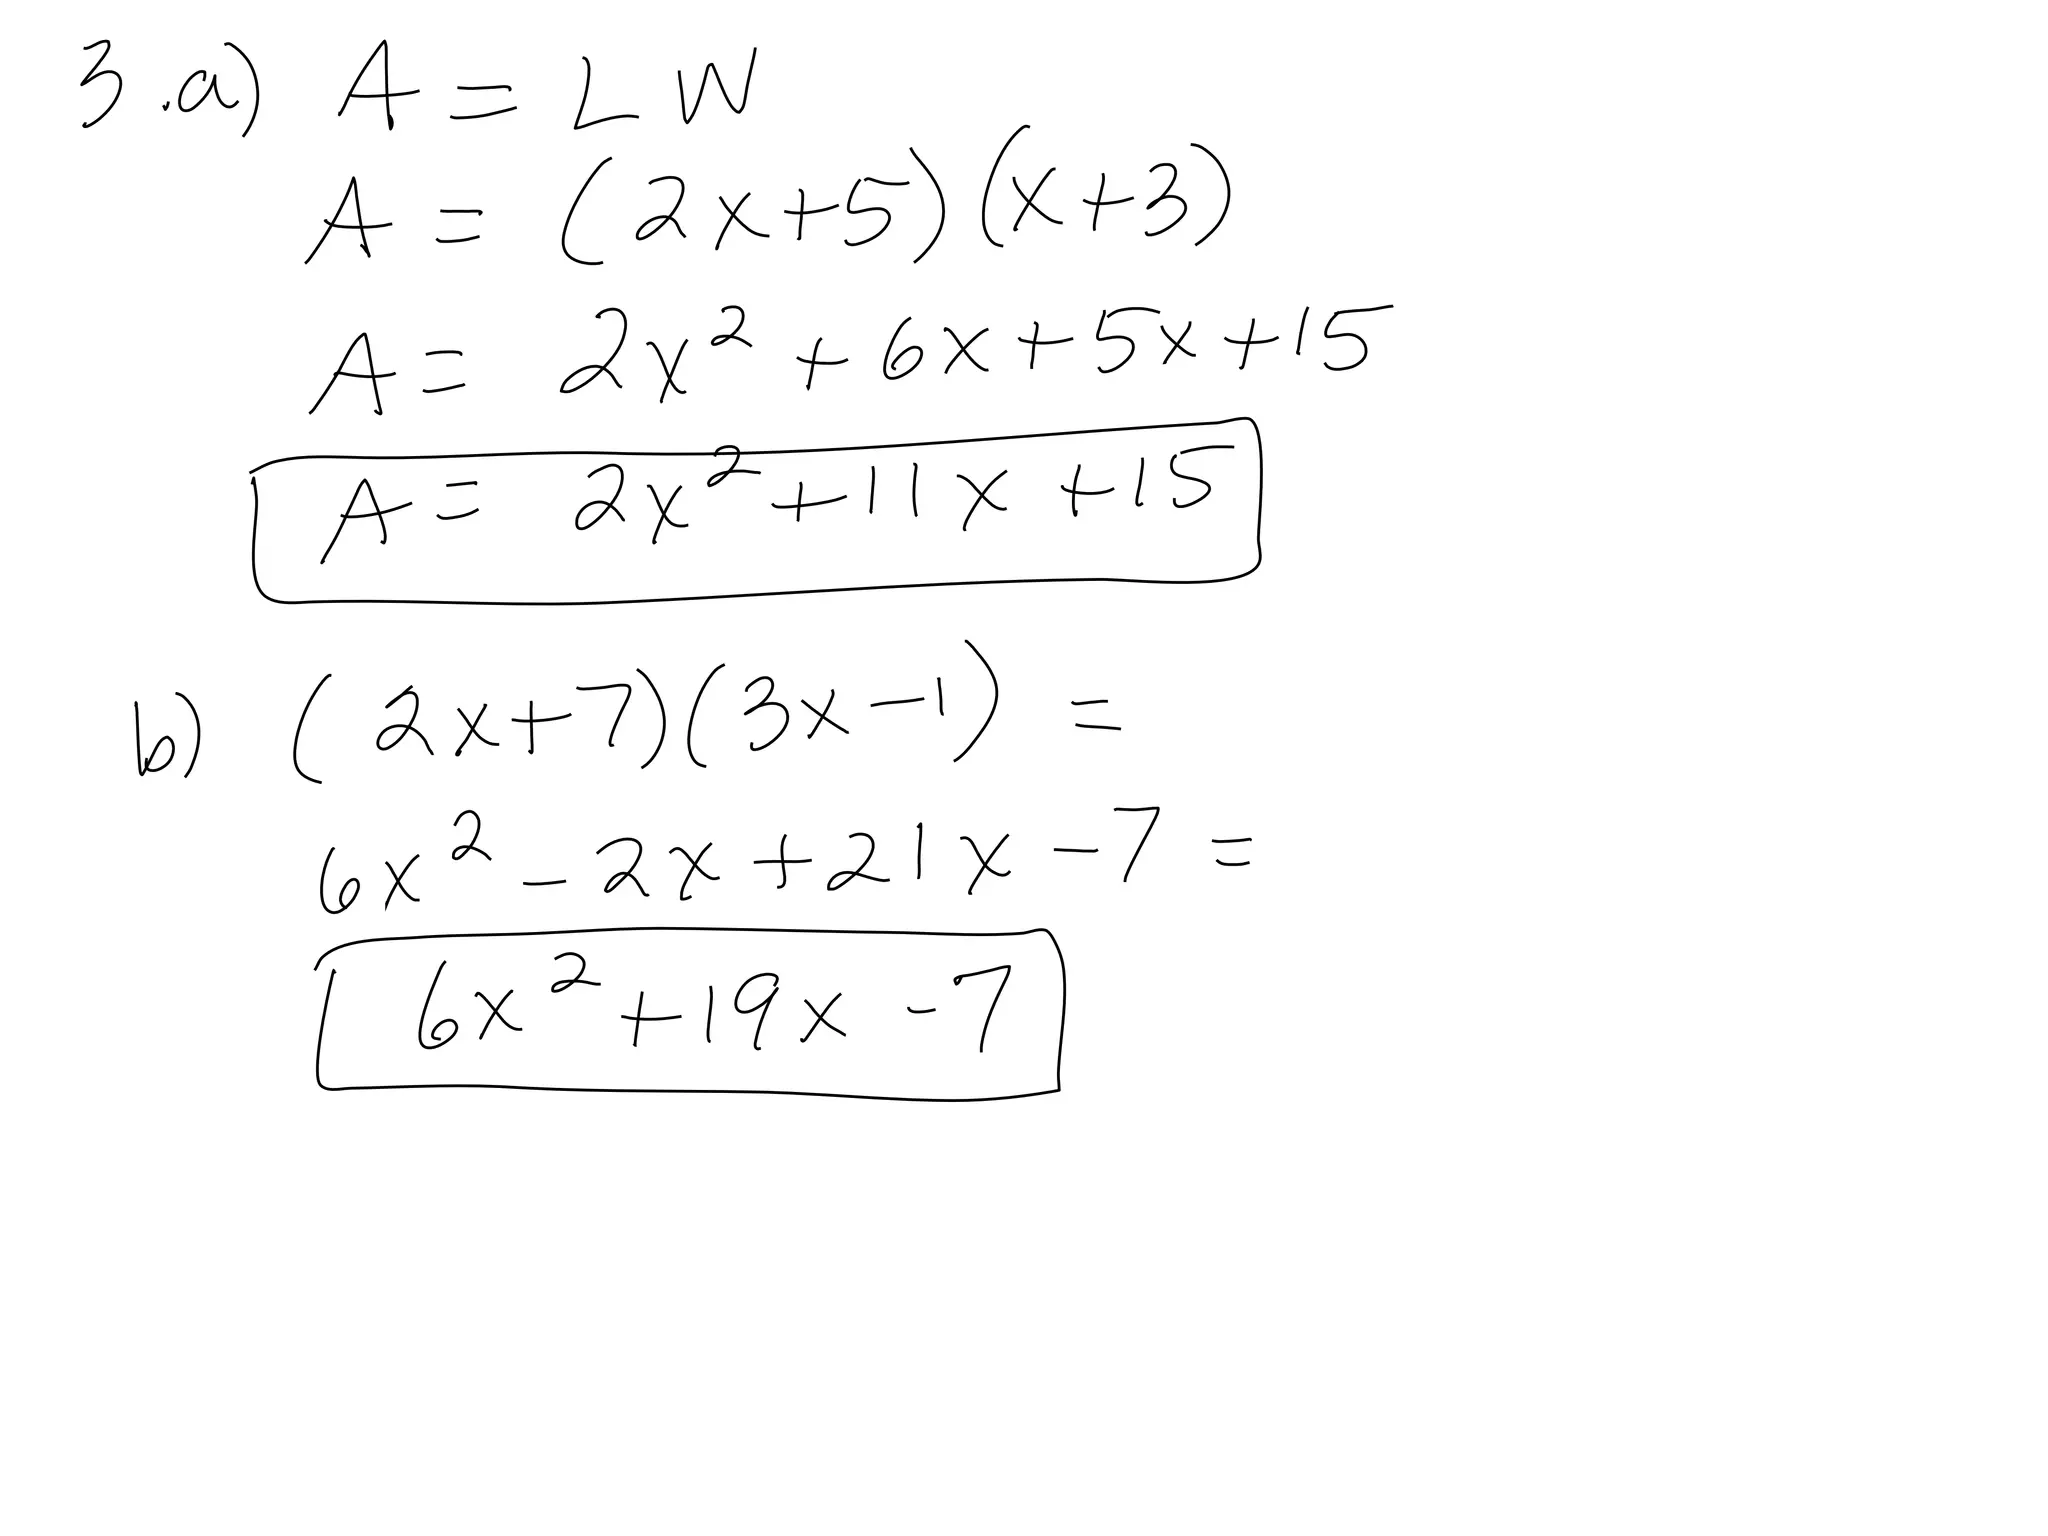 3.a) A = LW
A = (2x+5)(x+3)
A = 2x² + 6x + 5x + 15
A = 2x² + 11x + 15
b) (2x+7)(3x-1) =
6x² - 2x + 21x - 7 =
6x² + 19x - 7